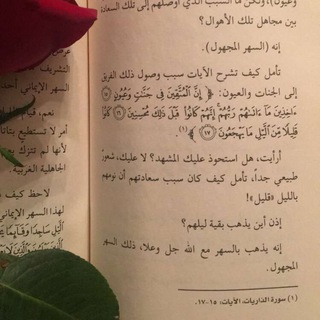 وعيون)، ولكن ما السبب الذي أوصلهم إلى تلك السعادة
بين مجاهل تلك الأهوال؟
إنه (السهر المجهول).
تأمل كيف تشرح الآيات سبب وصول ذلك الفريق
إلى الجنات والعيون: ﴿إِنَّ ٱلْمُتَّقِينَ فِى جَنَّٰتٍ وَعُيُونٍ ﴿١٥﴾
ءَاخِذِينَ مَآ ءَاتَىٰهُمْ رَبُّهُمْ ۚ إِنَّهُمْ كَانُوا۟ قَبْلَ ذَٰلِكَ مُحْسِنِينَ ﴿١٦﴾ كَانُوا۟
قَلِيلًا مِّنَ ٱلَّيْلِ مَا يَهْجَعُونَ ﴿١٧﴾﴾(١)
أرأيت، هل استحوذ عليك المشهد؟ لا عليك، شعور
طبيعي جداً، تأمل كيف كان سبب سعادتهم أن نومهم
بالليل «قليل»!
إذن أين يذهب بقية ليلهم؟
إنه يذهب بالسهر مع الله جل وعلا، ذلك السهر
المجهول.
(١) سورة الذاريات، الآيات: ١٥-١٧.
عرض
التشريف
السهر الإيماني أحد
نعم، قيام
أمر لا تستطيع بتاتا
لأنها لم تتزك بعد
الجاهلية الغربية.
لاحظ كيف
لهذا السهر الإيماني
ٱلَّيْلِ سَاجِدًا وَقَآئِمًا